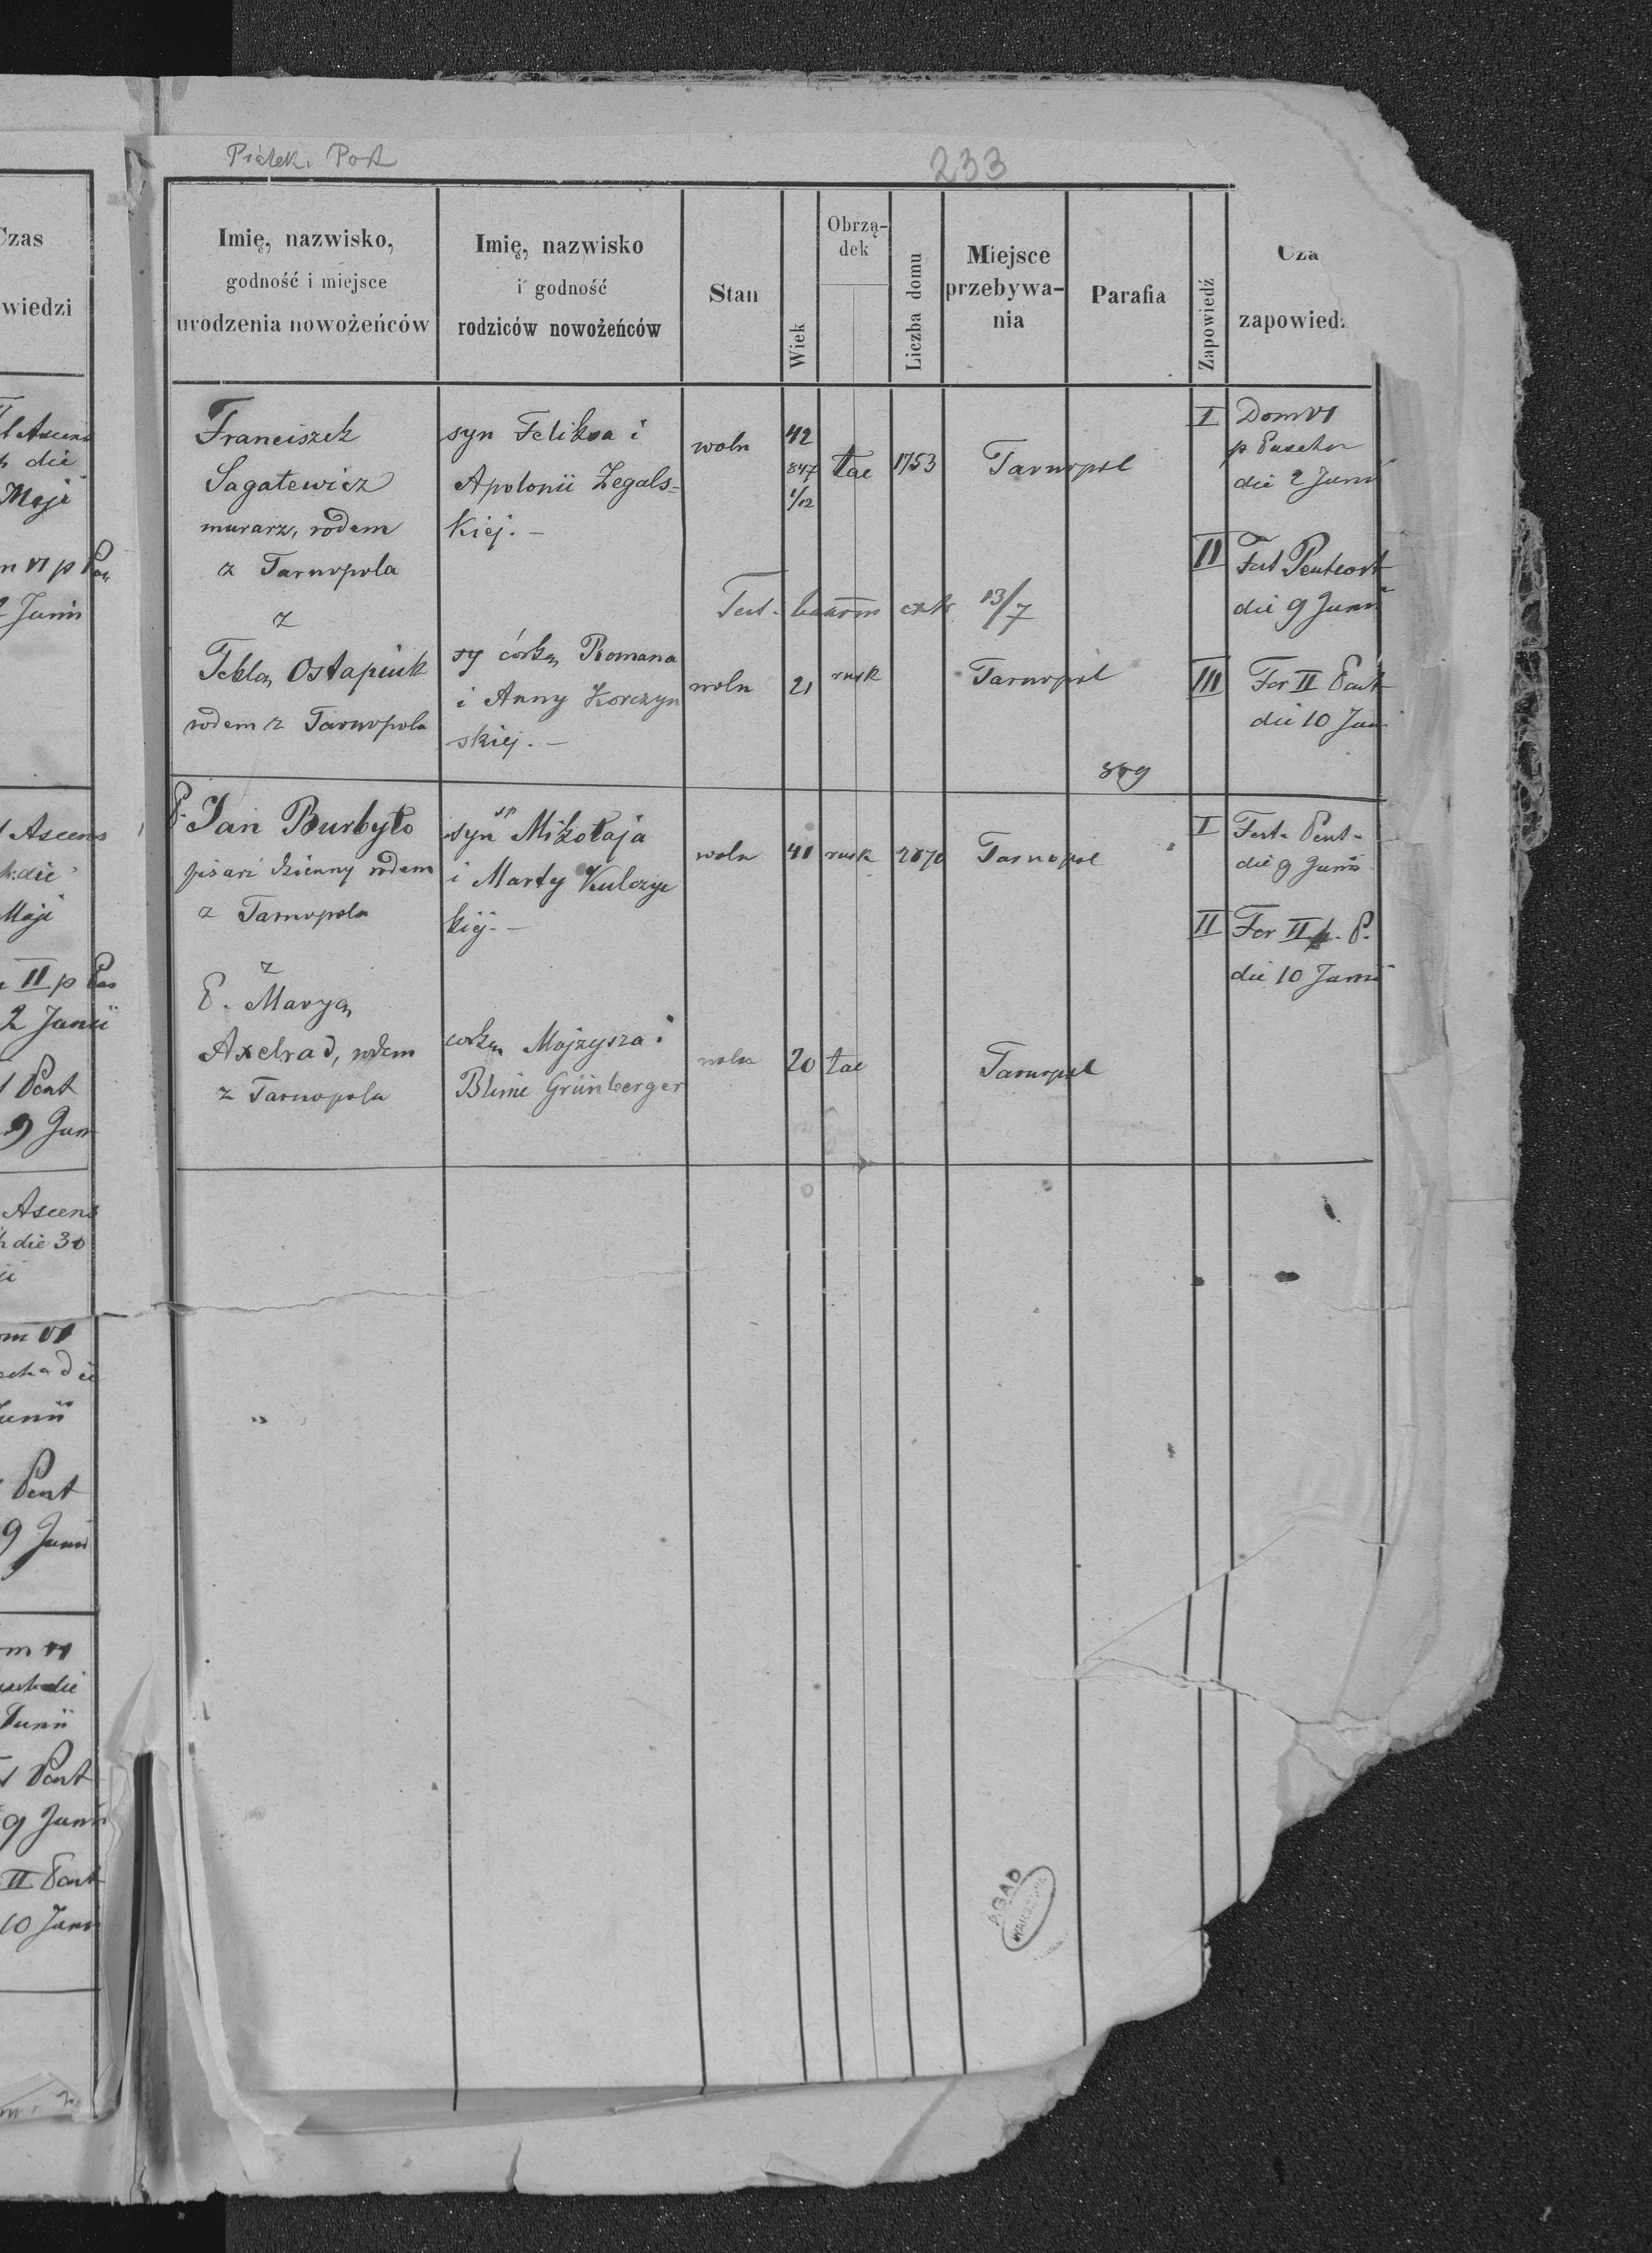 Piątek. Post
233
Czas
wiedzi
Imię, nazwisko,
godność i miejsce
urodzenia nowożeńców
Imię, nazwisko
i godność
rodziców nowożeńców
Stan
Wiek
Obrzą-
dek
Liczba domu
Miejsce
przebywa-
nia
Parafia
Zapowiedź
Cza
zapowied
Franciszek
Sagatewicz
murarz, rodem
z Tarnopola
z
Tekla Ostapiuk
rodem z Tarnopola
syn Feliksa i
Apolonii Zegals=
kiej. –
córka Romana
i Anny Korczyn
skiej. –
woln
42
847
1/12
łac
1753
Tarnopol
Test. 13/7
woln
21
rusk
Tarnopol
I Dom VI
p Pascha
die 2 Junii
II Fest Pentecost
die 9 Junii
III Fer II Pent
die 10 Jun
P. Jan Burbyło
pisarz dzienny rodem
z Tarnopola
z
P. Marya
Axelrad, rodem
z Tarnopola
syn sp Mikołaja
i Marty Kulczyc
kiej. –
córka Mojzysza i
Blimie Grünberger
woln
41
rusk
2070
Tarnopol
woln
20
łac
Tarnopol
I Fest. Pent.
die 9 Junii
II Fer II p. P.
die 10 Junii
Ascens
die
Maji
VI p Pas
2 Junii
Ascens
die
Maji
II p Pas
2 Junii
Pent
9 Jun
Ascens
die 30
VI
die
Junii
Pent
9 Junii
VI
die
Junii
Pent
9 Junii
II Pent
10 Junii
AGAD
WARSZAWA